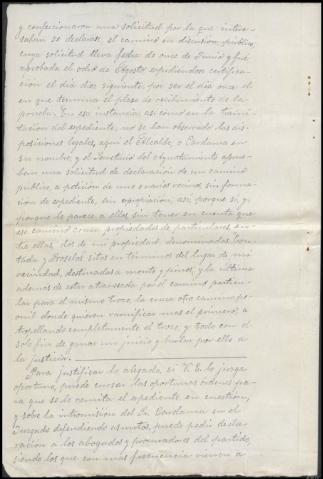 y confeccionaron una solicitud por la que intere-
saban se declarase el camino en discusion, publico,
cuya solicitud lleva fecha de once de Junio y fué
aprobada el ocho de Agosto expidiendose certifica-
ción el dia diez siguiente, por ser el dia once el
en que termina el plazo de recibimiento de la
prueba. En esa instancia asi como en la trami-
tacion del expediente, no se han observado las dis-
posiciones legales, aqui el Alcalde, o Cardama en
su nombre y el Secretario del Ayuntamiento aprue-
ban una solicitud de declaración de un camino
publico, a petición de unos cuarios vecinos, sin forma-
ción de expediente, sin expropiación, asi porque si y
porque le parece a ellos sin tener en cuenta que
ese camino cruza propiedades de particulares en-
tre ellas, dos de mi propiedad denominadas
y sitas en términos del lugar de mi
vecindad, destinadas a monte y pinos, y la ultima
ademas de estar atravesada por el camino particu-
lar para el mismo trozo, la cruza otro camino pe-
onil donde quieren ramificar mas el primero, a-
tropellando completamente el trozo, y todo con el
solo fin de ganar un juicio y burlar por ello a
la justicia.
Para justificar lo alegado, si V.E. lo juzga
oportuno, puede cursar las oportunas órdenes pa-
ra que se le remita el expediente en cuestion,
y sobre la intromisión del Sr. Cardama en el
Juzgado defendiendo asuntos, puede pedir decla-
ración a los abogados y procuradores del partido,
siendo los que con mas frecuencia vienen a